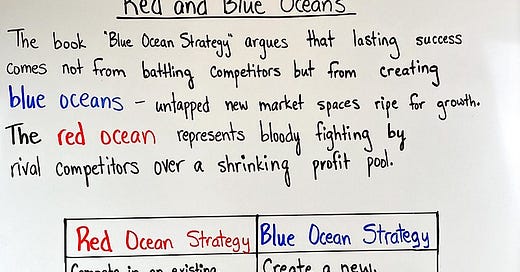 Red and Blue Oceans
The book "Blue Ocean Strategy" argues that lasting success
comes not from battling competitors but from creating
blue oceans – untapped new market spaces ripe for growth.
The red ocean represents bloody fighting by
rival competitors over a shrinking profit pool.
Red Ocean Strategy Blue Ocean Strategy
Compete in an existing Create a new,